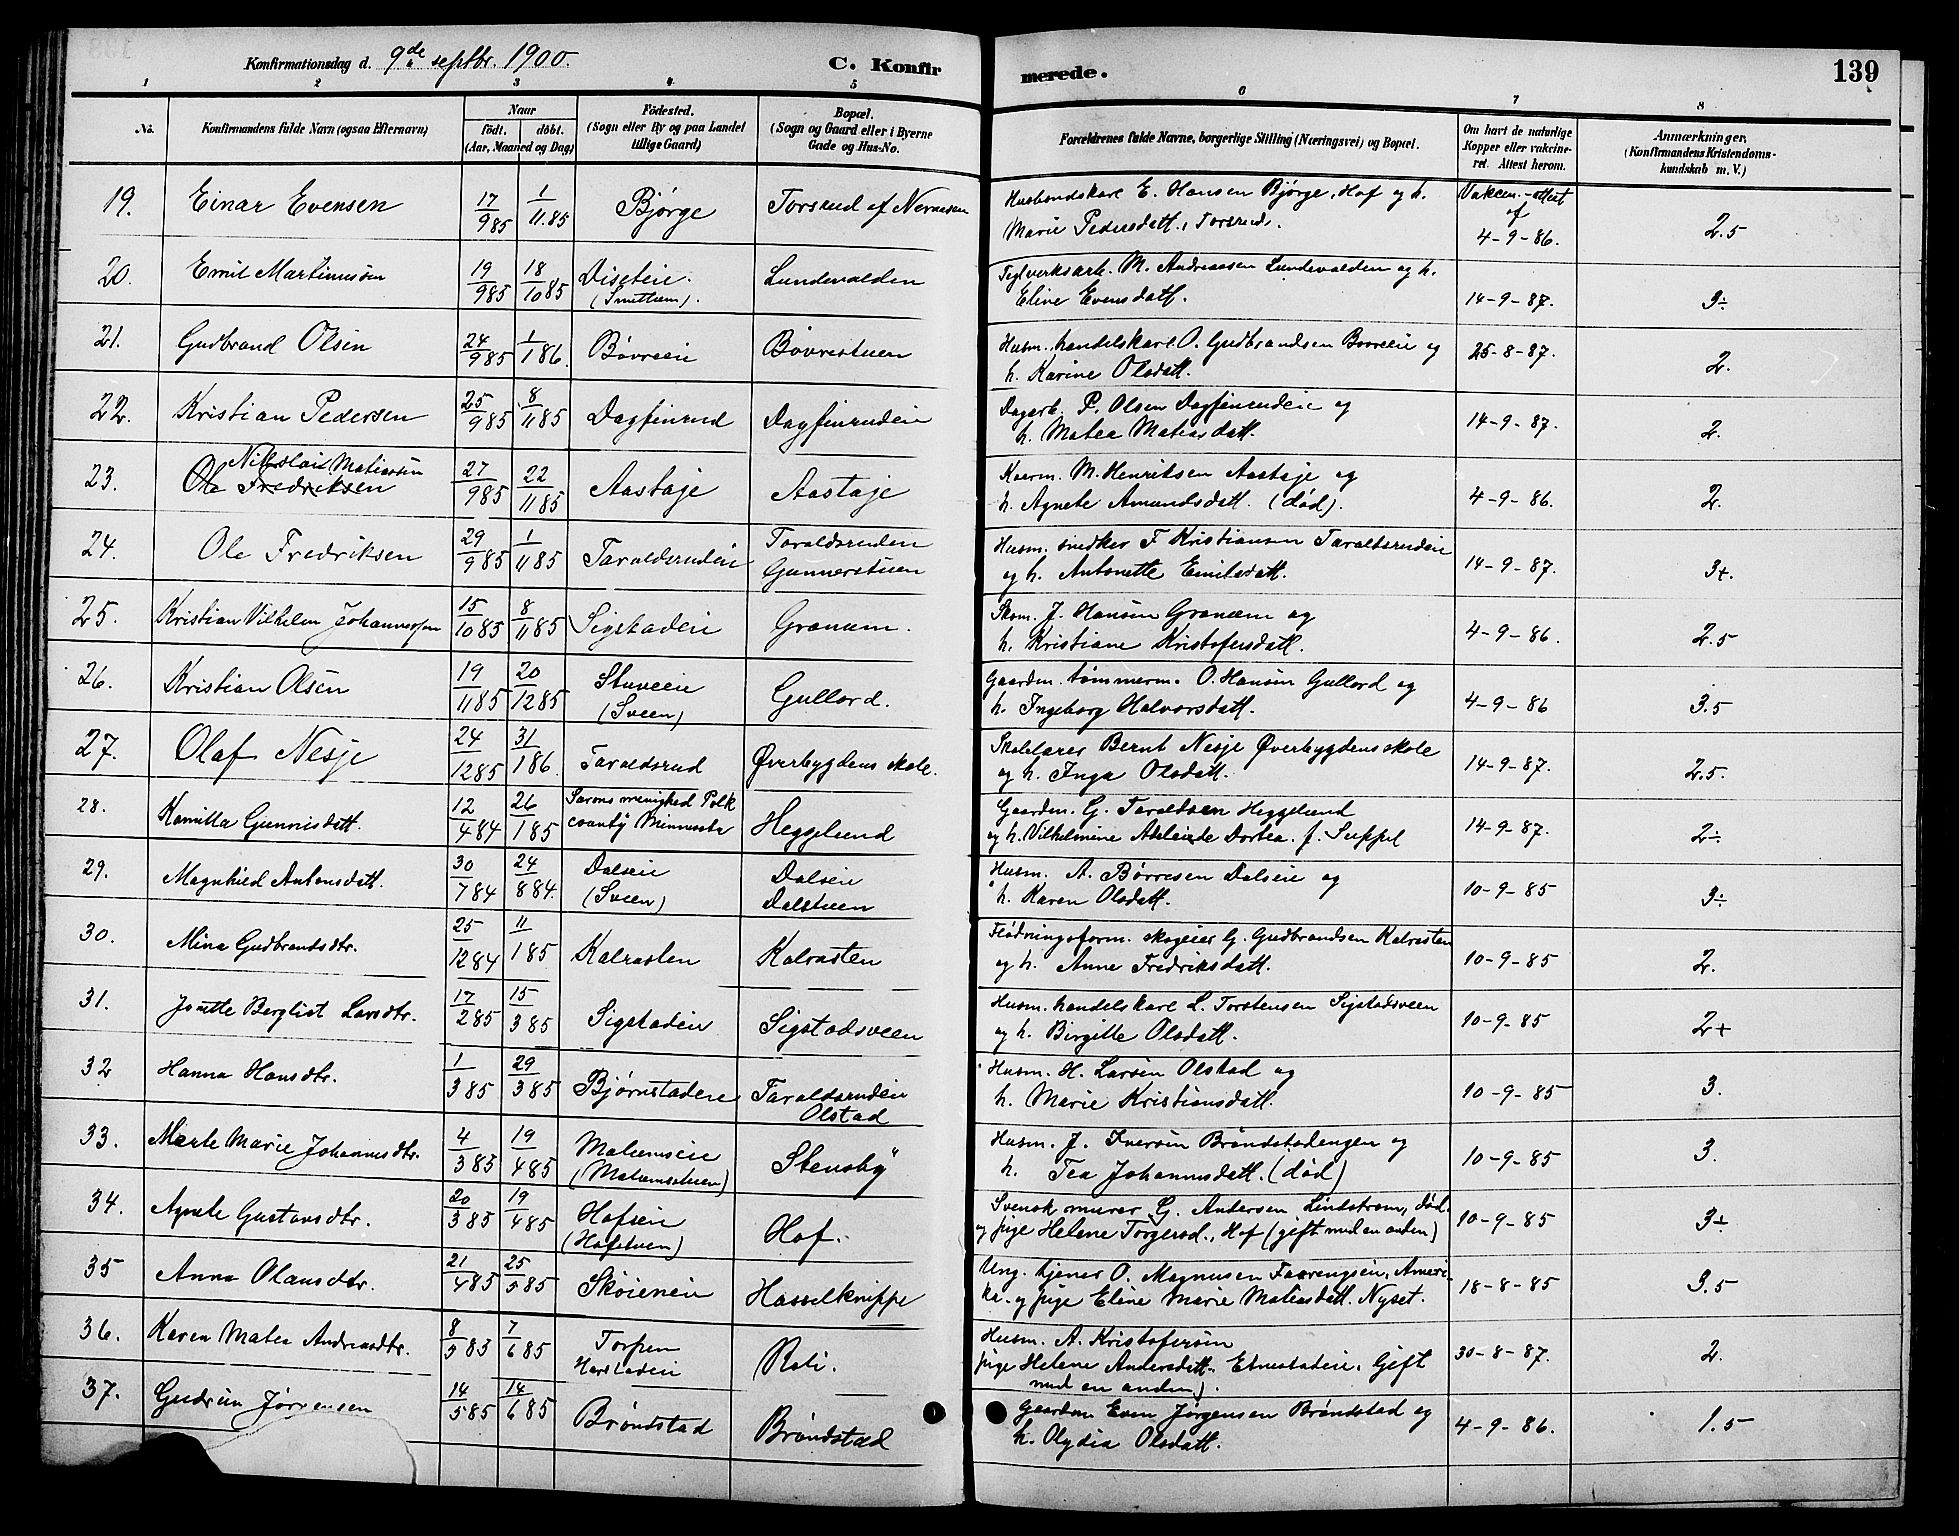 Konfirmationsdag d. 9de septbr. 1900.
C. Konfirmerede.
139
1 2 3 4 5 6 7 8
No.
Konfirmandens fulde Navn (ogsaa Efternavn)
Naar
födt. döbt.
(Aar, Maaned og Dag)
Födested.
(Sogn eller By og paa Landet
tillige Gaard)
Bopæl.
(Sogn og Gaard eller i Byerne
Gade og Hus-No.
Forældrenes fulde Navne, borgerlige Stilling (Næringsvei) og Bopæl.
Om havt de naturlige
Kopper eller vakcine-
ret. Attest herom.
Anmærkninger,
(Konfirmandens Kristendoms-
kundskab m. V.)
19. Einar Evensen 17/9 85 1/11 85 Bjørge Torsrud af Nernæsen
Husbondskarl E. Hansen Bjørge, Hof og h.
Marie Pedersdatt., Torsrud.
Vakcin.-attest
af
4-9-86. 2.5
20. Emil Martinussen 19/9 85 18/10 85 Diseteie. Lundevolden
Teglverksarb. M. Andreassen Lundevolden og h.
Eline Evensdatt. 14-9-87. 3÷
21. Gudbrand Olsen 24/9 85 1/1 86. Bövreeie Bövrestuen
Husm. handelskarl O. Gudbrandsen Bovreeie og
h. Karine Olsdatt. 25-8-87. 2.
22. Kristian Pedersen 25/9 85 8/11 85 Dagfinrud Dagfinrudeie
Dagarb. P. Olsen Dagfinrudeie og
h. Matea Matiasdatt. 14-9-87. 2.
23. Nikolai Matiassen
Ole Fredriksen 27/9 85 22/11 85 Aastaje Aastaje
Kaarm. M. Henriksen Aastaje og
h. Agnete Amundsdatt. (död). 4-9-86. 2.
24. Ole Fredriksen 29/9 85 1/11 85 Taraldsrudeie Taraldsruden
Gunnerstuen
Husm. snedker F. Kristiansen Taraldsrudeie
og h. Antonette Emilsdatt. 14-9-87. 3+.
25. Kristian Vilhelm Johannessen 15/10 85 8/11 85 Sigstadeie Granum.
Skom. J. Hansen Granum og
h. Kristiane Kristofersdatt. 4-9-86. 2.5
26. Kristian Olsen 19/11 85 20/12 85 Stuveeie
(Sveen) Gullord.
Gaardm. tømmerm. O. Hansen Gullord og
h. Ingeborg Halvorsdatt. 4-9-86 3.5
27. Olaf Nesje 24/12 85 31/1 86. Taraldsrud Øverbygdens skole.
Skolelærer Bernt Nesje Øverbygdens skole
og h. Inga Olsdatt. 14-9-87. 2.5.
28. Kamilla Gunnisdatt. 12/4 84 26/1 85 Sarons menighed Polk
county Minnesota Heggelund
Gaardm. G. Taraldsen Heggelund
og h. Vilhelmine Adeleide Dortea. f. Suppel 14-9-87. 2÷
29. Magnhild Antonsdatt. 30/7 84 24/8 84. Dalseie
(Sveen) Dalseie
Dalstuen
Husm. A. Börresen Dalseie og
h. Karen Olsdatt. 10-9-85 3÷
30. Mina Gudbrandsdtr. 25/12 84 11/1 85 Kalrasten Kalrasten
Flødningsform. skogeier G. Gudbrandsen Kalrasten
og h. Anne Fredriksdatt. 10-9-85 2.
31. Josette Bergliot Larsdtr. 17/2 85 15/3 85 Sigstadeie Sigstadsveen
Husm. handelskarl L. Torstensen Sigstadsveen
og h. Birgitte Olsdatt. 10-9-85 2+
32 Hanna Hansdtr. 1/3 85 29/3 85 Bjørnstadeie Taraldsrudeie
Olstad
Husm. H. Larsen Olstad og
h. Marie Kristiansdatt. 10-9-85 3.
33. Marte Marie Johannesdtr. 4/3 85 19/4 85 Malumseie
(Malumstuen) Stensby
Husm. J. Iversen Bröndstadengen og
h. Tea Johannesdatt. (död) 10-9-85 3.
34. Agnete Gustavsdtr. 20/3 85 19/4 85 Hofseie
(Hofstuen) Hof.
Svensk murer G. Andersen Lindstrøm, død.
og pige Helene Torgersd., Hof (gift med en anden) 10-9-85 3÷
35 Anna Olausdtr. 21/4 85 25/5 85 Skøieneie Hasselknippe
Ung. tjener O. Magnusen Faarengseie, Ameri-
ka. og pige Eline Marie Matiasdatt. Nyset. 18-8-85 3.5
36. Karen Matea Andreasdtr. 8/5 83 7/6 85 Torpen
Harstadeie Roli.
Husm. A. Kristofersen
pige Helene Andersdatt. Etnestadeie. (gift
med en anden). 30-8-87. 2.
37. Gudrun Jørgensen 14/5 85 14/6 85 Bröndstad Bröndstad
Gaardm Even Jørgensen Bröndstad og
h. Olydia Olsdatt. 4-9-86. 1.5